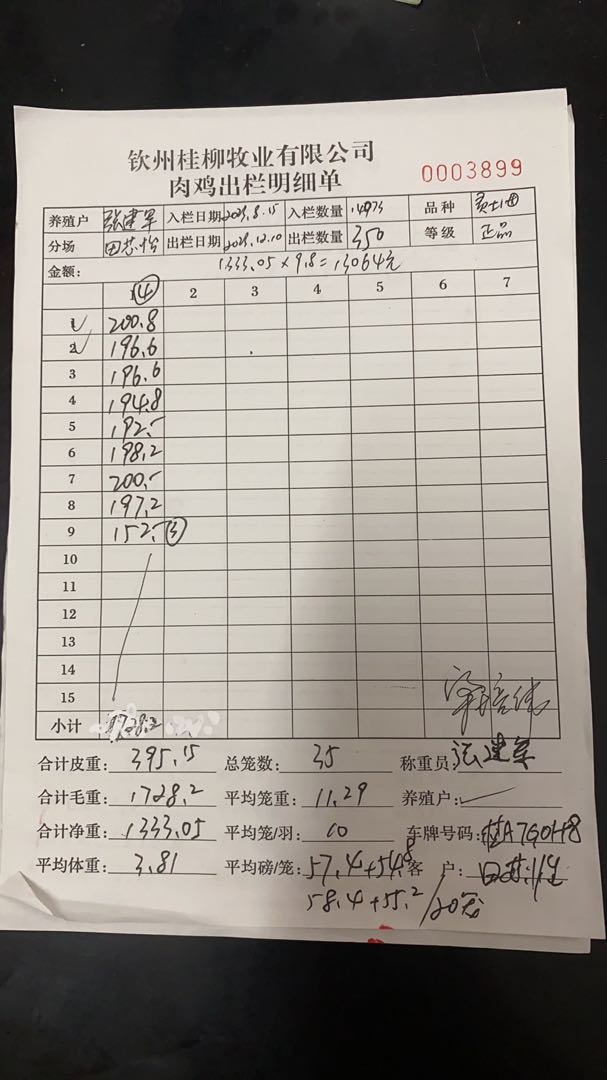 钦州桂柳牧业有限公司
肉鸡出栏明细单
0003899
养殖户 张建军 入栏日期 2023.8.15 入栏数量 14973 品种
分场 田芯怡 出栏日期 2023.12.10 出栏数量 350 等级 正品
金额: 1333.05×9.8=13064元
1 ④ 2 3 4 5 6 7
1 200.8
2 196.6
3 196.6
4 194.8
5 192.5
6 198.2
7 200.5
8 197.2
9 152.5 ③
10
11
12
13
14
15
小计 1728.2
合计皮重: 395.15 总笼数: 35 称重员: 张建军
合计毛重: 1728.2 平均笼重: 11.29 养殖户:
合计净重: 1333.05 平均笼/羽: 10 车牌号码: 桂A7G0H8
平均体重: 3.81 平均磅/笼: 57.4+54.8 客户:
58.4+55.2 /20笼